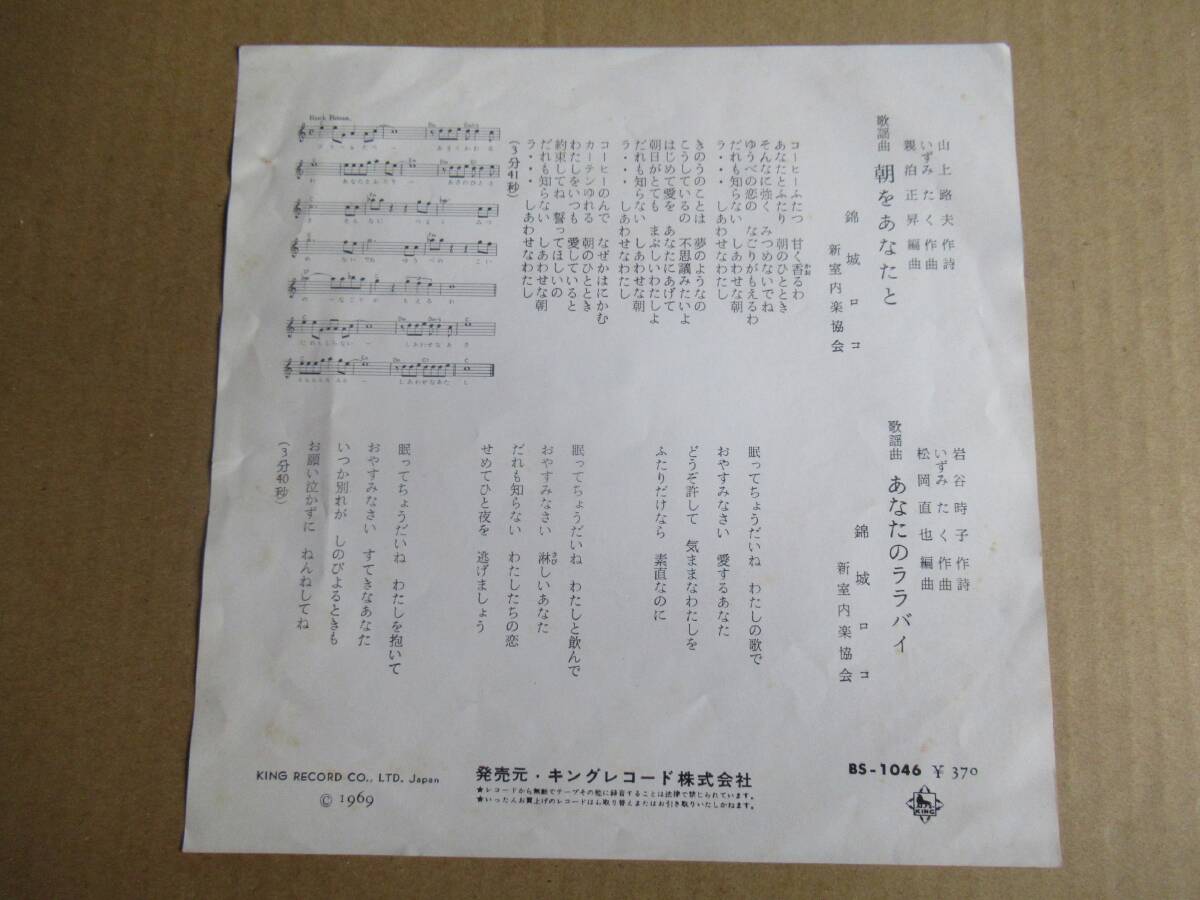 山上路夫 作詩
いずみたく 作曲
親泊正昇 編曲
歌謡曲 朝をあなたと
錦城ロコ
新室内楽協会
コーヒーふたつ 甘く香るわ
かお
あなたとふたり 朝のひととき
そんなに強く みつめないでね
ゆうべの恋の なごりがもえるわ
だれも知らない しあわせな朝
ラ・・・ しあわせなわたし
きのうのことは 夢のようなの
こうしているの 不思議みたいよ
はじめて愛を あなたにあげて
朝日がとても まぶしいわたしよ
だれも知らない しあわせな朝
ラ・・・ しあわせなわたし
コーヒーのんで なぜかはにかむ
カーテンゆれる 朝のひととき
わたしをいつも 愛していると
約束してね 誓ってほしいの
だれも知らない しあわせな朝
ラ・・・ しあわせなわたし
(3分41秒)
岩谷時子 作詩
いずみたく 作曲
松岡直也 編曲
歌謡曲 あなたのララバイ
錦城ロコ
新室内楽協会
眠ってちょうだいね わたしの歌で
おやすみなさい 愛するあなた
どうぞ許して 気ままなわたしを
ふたりだけなら 素直なのに
眠ってちょうだいね わたしと飲んで
おやすみなさい 淋しいあなた
さび
だれも知らない わたしたちの恋
せめてひと夜を 逃げましょう
眠ってちょうだいね わたしを抱いて
おやすみなさい すてきなあなた
いつか別れが しのびよるときも
お願い泣かずに ねんねしてね
(3分40秒)
KING RECORD CO., LTD. Japan
© 1969
発売元・キングレコード株式会社
★レコードから無断でテープその他に録音することは法律で禁じられています。
★いったんお買上げのレコードはお取り替えまたはお引き取りいたしかねます。
BS-1046 ¥ 370
KING